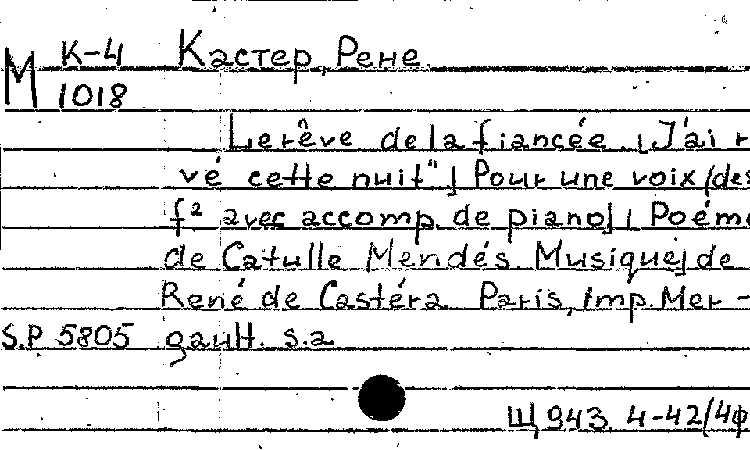 М К-4 Кастер, Рене.
1018
Le rêve de la fiancée. ["J'ai r
vé cette nuit"] Pour une voix (des
f² avec accomp. de piano] [Poéme
de Catulle Mendés Musique] de
René de Castéra Paris, Imp. Mer-
S.P 5805 gault. s.a
Щ 943 4-42/4ф